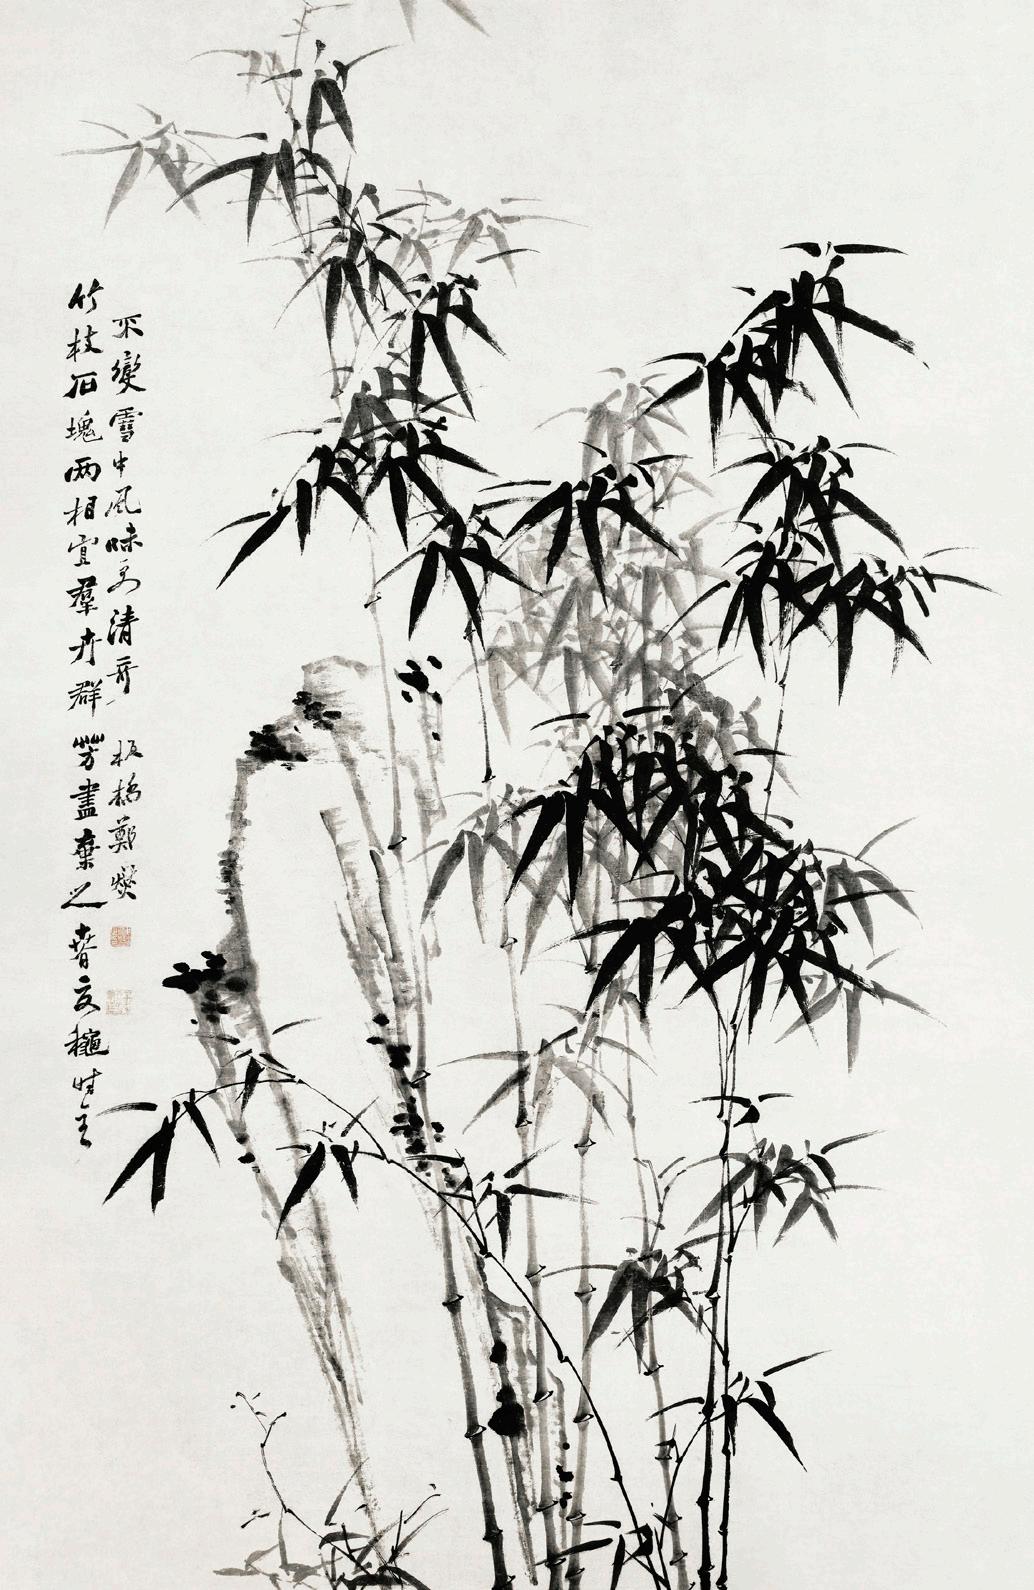 竹枝石塊兩相宜羣卉群芳盡棄之春夏龝時全
不變雪中風味更清奇 板橋鄭燮